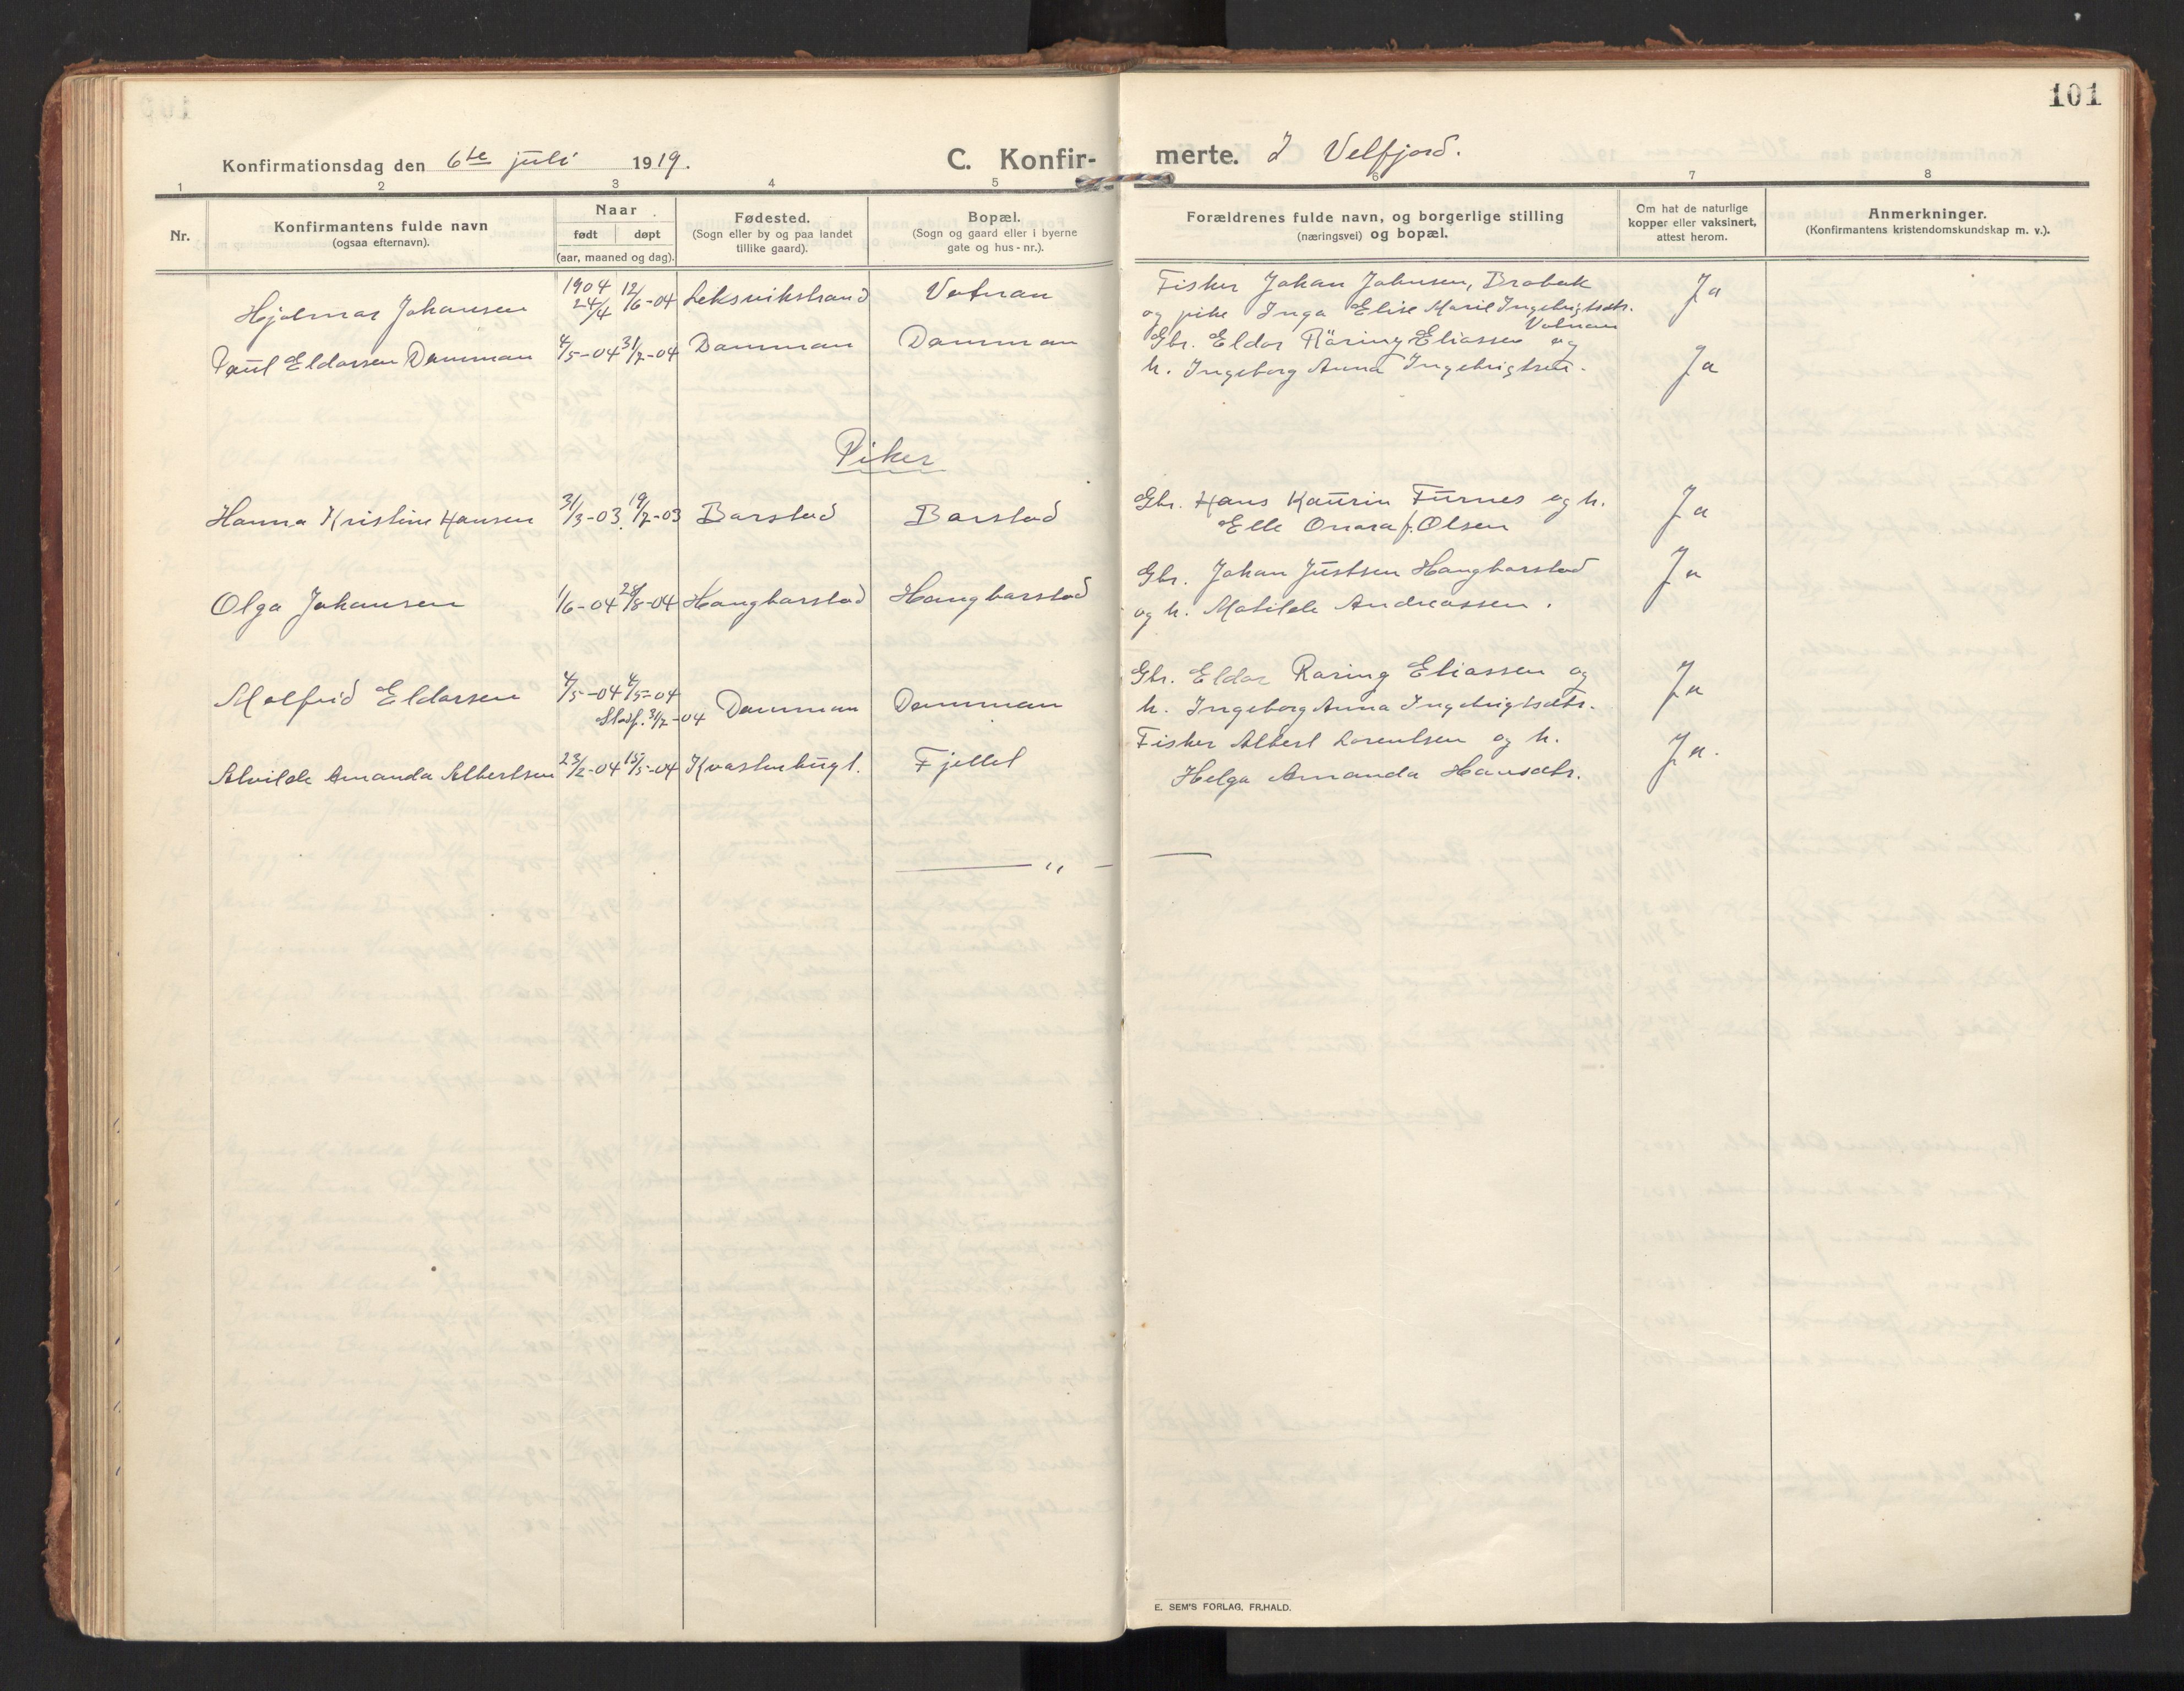 101
Konfirmationsdag den 6te juli 1919.
C. Konfir-merte. I Velfjord.
1 2 3 4 5 6 7 8
Nr.
Konfirmantens fulde navn
(ogsaa efternavn).
Naar
født døpt
(aar, maaned og dag).
Fødested.
(Sogn eller by og paa landet
tillike gaard).
Bopæl.
(Sogn og gaard eller i byerne
gate og hus - nr.).
Forældrenes fulde navn, og borgerlige stilling
(næringsvei) og bopæl.
Om hat de naturlige
kopper eller vaksinert,
attest herom.
Anmerkninger.
(Konfirmantens kristendomskundskap m. v.).
Hjalmar Johansen 1904 24/4 12/6-04 Leksvikstrand Vatnan
Fisker Johan Johnsen, Brobak
og pike Inga Elise Marie Ingebrigtsdtr.
Vatnan
Ja
Paul Eldorsen Damman 4/5-04 31/7-04 Damman Damman
Gbr. Eldor Räring Eliassen og
h. Ingeborg Anna Ingebrigtsdtr.
Ja
Piker
Hanna Kristine Hansen 31/3-03. 19/7-03 Barstad Barstad
Gbr. Hans Kaurin Furnes og h.
Elle Onara f. Olsen
Ja
Olga Johansen 1/6-04 28/8-04 Haugbarstad Haugbarstad
Gbr. Johan Justsen Haugbarstad
og h. Matilde Andreassen.
Ja
Malfrid Eldorsen 4/5-04 4/5-04
Stadf. 31/7-04 Damman Damman
Gbr. Eldor Raring Eliassen og
h. Ingeborg Anna Ingebrigtsdtr.
Ja
Alvilde Amanda Albertsen 23/2-04 15/5-04 Kvastenbugt. Fjellet
Fisker Albert Lorentsen og h.
Helga Amanda Hansdtr.
Ja.
— „ —
E. SEM'S FORLAG, FR.HALD.